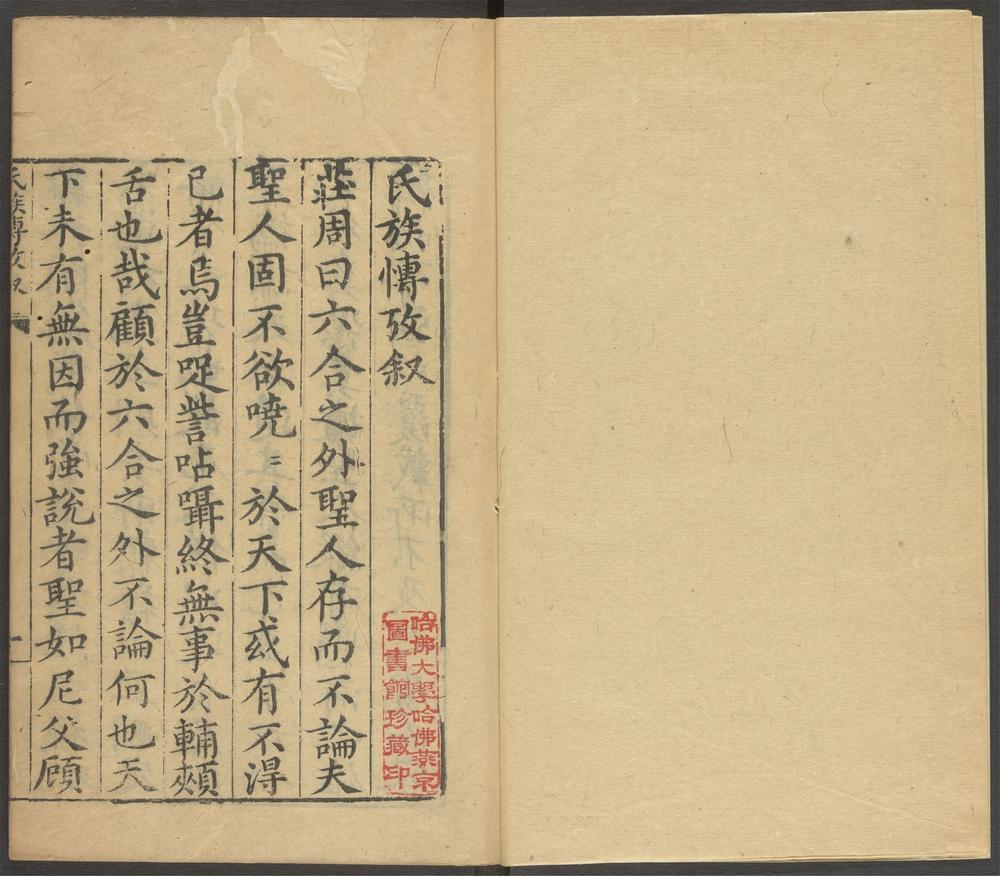 氏族慱攷叙
莊周曰六合之外聖人存而不論夫
聖人固不欲嘵〻於天下或有不得
已者焉豈哫訾呫躡終無事於輔頰
舌也哉顧於六合之外不論何也天
下未有無因而強說者聖如尼父顧
氏族慱攷叙
一
哈佛大學哈佛燕京
圖書館珍藏印